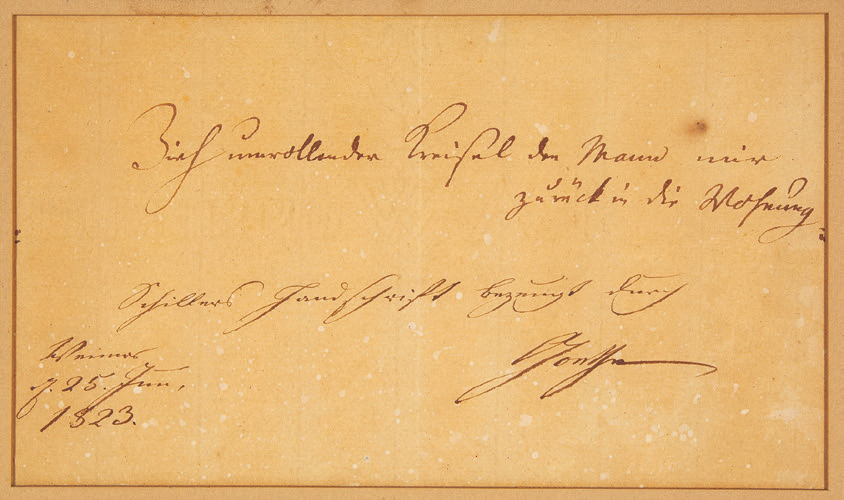 Zieh umrollender Kreisel den Mann mir
zurück in die Wohnung
Schillers Handschrift bezeugt durch
Goethe
Weimar
d. 25. Jun,
1823.